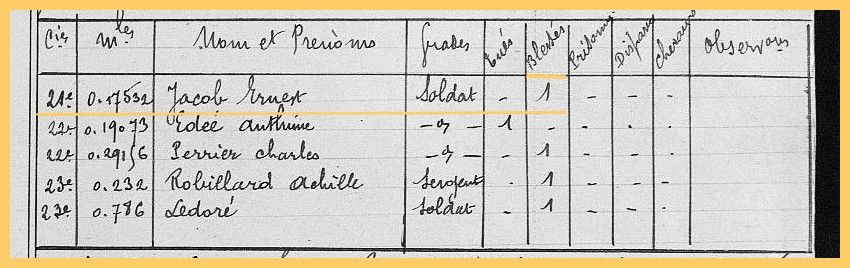 Cies Mles Nom et Prénoms Grades Tués Blessés Prisonn. Disparus Chevaux Observons
21e 0.17532 Jacob Ernest Soldat - 1 - - -
22e 0.19073 Edeé anthime -"- 1 - - - -
22e 0.29156 Perrier charles -"- 1 - - -
23e 0.232 Robillard achille Sergent - 1 - - -
23e 0.786 Ledoré Soldat - 1 - - -